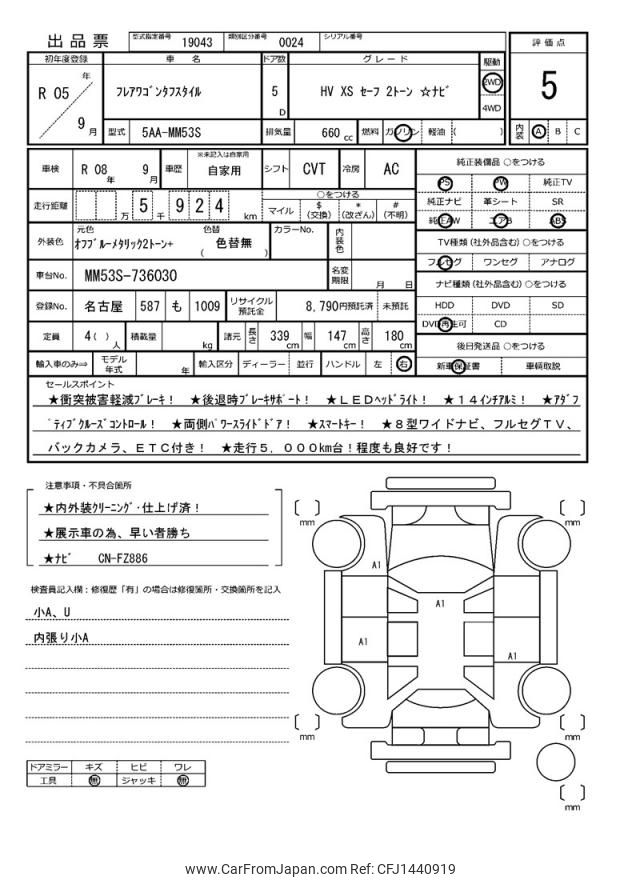 出品票 型式指定番号 19043 類別区分番号 0024 シリアル番号
初年度登録 車名 ドア数 グレード 駆動 評価点
R 05 年 9 月 フレアワゴンタフスタイル 5 D HV XS セーフ 2トーン ☆ナビ 2WD 4WD 5
型式 5AA-MM53S 排気量 660 cc 燃料 ガソリン 軽油 ( ) 内装 A B C
車検 R 08 年 9 月 車歴 ※未記入は自家用 自家用 シフト CVT 冷房 AC
走行距離 万 5 千 9 2 4 km ○をつける マイル $ (交換) * (改ざん) # (不明)
外装色 元色 オフブルーメタリック2トーン+ 色替 ( 色替無 ) カラーNo. 内装色
車台No. MM53S-736030 名変期限 月 日
登録No. 名古屋 587 も 1009 リサイクル預託金 8,790円預託済 未預託
定員 4 ( ) 人 積載量 kg 諸元 長さ 339 cm 幅 147 cm 高さ 180 cm
輸入車のみ⇒ モデル年式 年 輸入区分 ディーラー 並行 ハンドル 左 右
純正装備品 ○をつける
PS PW 純正TV
純正ナビ 革シート SR
純正AW エアB ABS
TV種類 (社外品含む) ○をつける
フルセグ ワンセグ アナログ
ナビ種類 (社外品含む) ○をつける
HDD DVD SD
DVD再生可 CD
後日発送品 ○をつける
新車保証書 車輌取説
セールスポイント
★衝突被害軽減ブレーキ! ★後退時ブレーキサポート! ★LEDヘッドライト! ★14インチアルミ! ★アダプ
ティブクルーズコントロール! ★両側パワースライドドア! ★スマートキー! ★8型ワイドナビ、フルセグTV、
バックカメラ、ETC付き! ★走行5,000km台!程度も良好です!
注意事項・不具合箇所
★内外装クリーニング・仕上げ済!
★展示車の為、早い者勝ち
★ナビ CN-FZ886
検査員記入欄:修復歴「有」の場合は修復箇所・交換箇所を記入
小A、U
内張り小A
ドアミラー キズ ヒビ ワレ
工具 無 ジャッキ 無
[ ] mm
[ ] mm
A1
A1
A1
A1
[ ] mm
[ ] mm
[ ] mm
www.CarFromJapan.com Ref: CFJ1440919